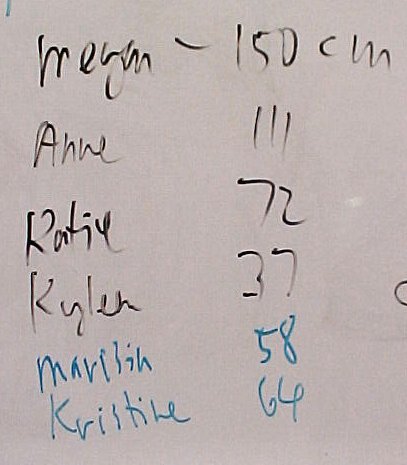 Megan - 150 cm
Anne 111
Katie 72
Kylen 37
Marisin 58
Kristine 64